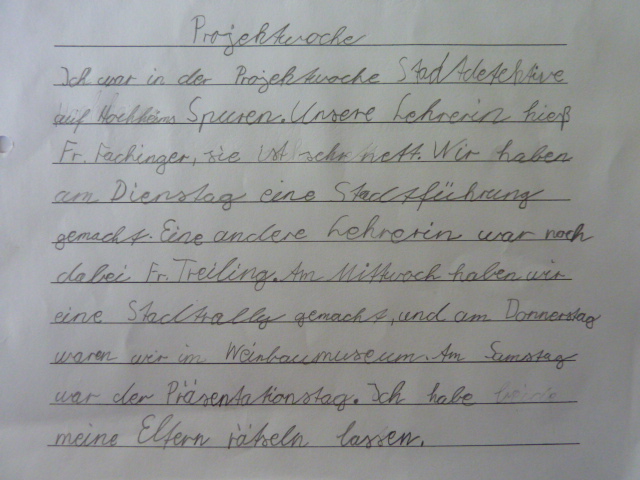 Projektwoche
Ich war in der Projektwoche Stadtdetektive
auf Hochheims Spuren. Unsere Lehrerin hieß
Fr. Fachinger, sie ist sehr nett. Wir haben
am Dienstag eine Stadtführung
gemacht. Eine andere Lehrerin war noch
dabei Fr. Treiling. Am Mittwoch haben wir
eine Stadtrally gemacht, und am Donnerstag
waren wir im Weinbaumuseum. Am Samstag
war der Präsentationstag. Ich habe
meine Eltern rätseln lassen.